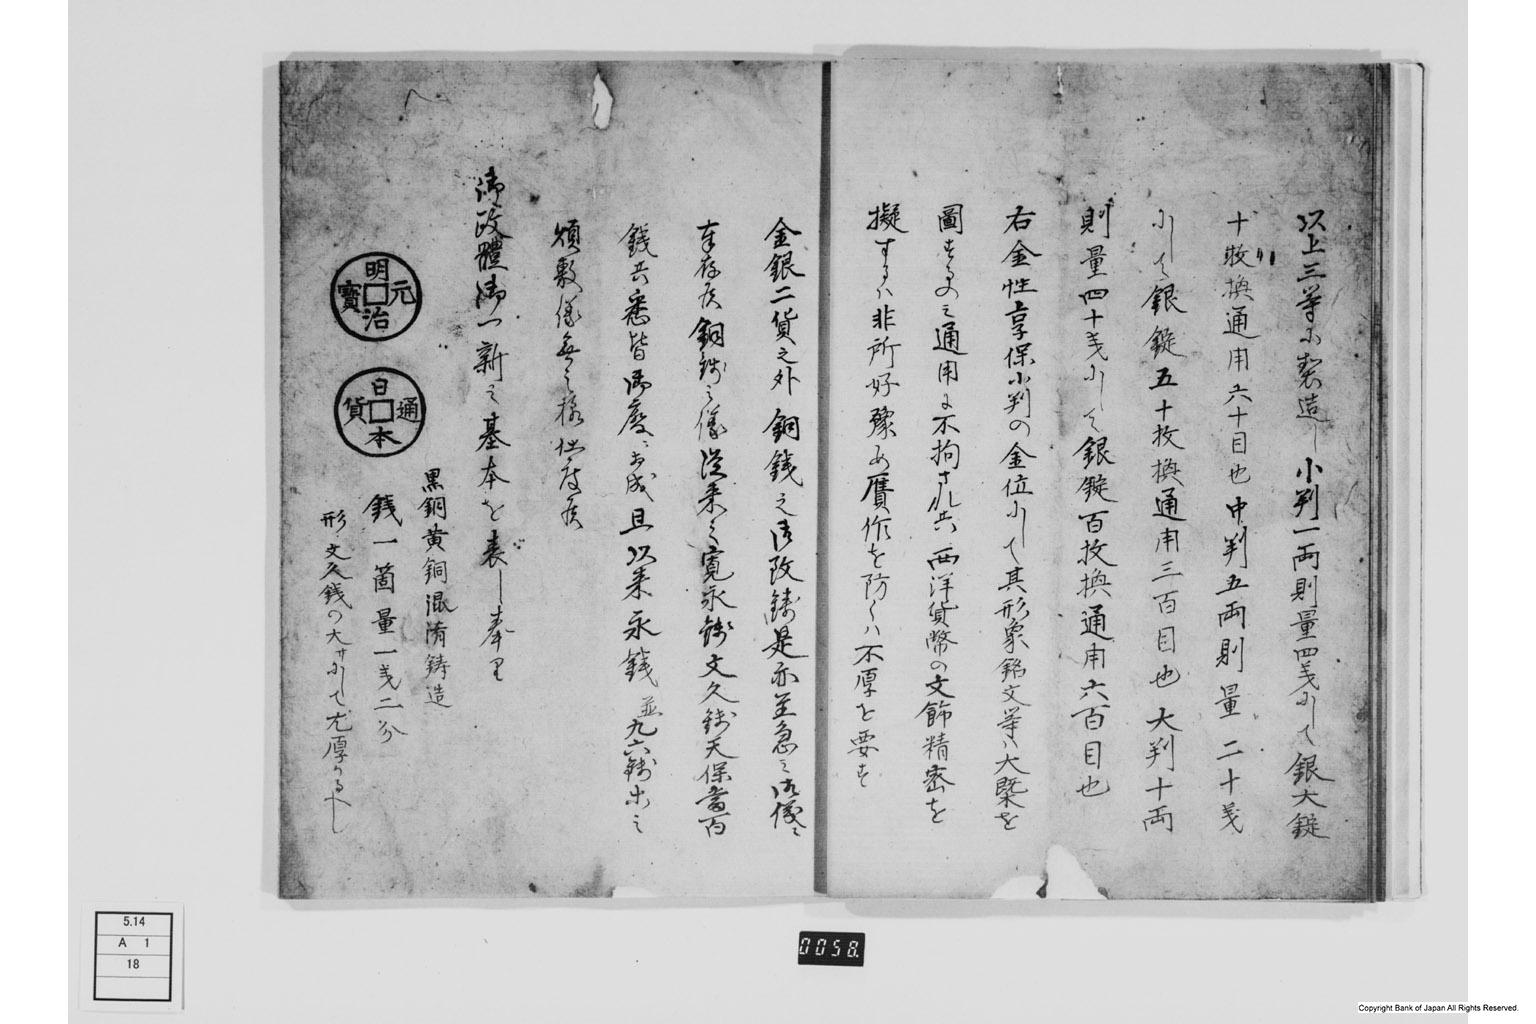 以上三等ニ製造し小判一両則量四匁にして銀大錠
十枚換通用六十目也中判五両則量二十匁
にして銀錠五十枚換通用三百目也大判十両
則量四十匁にして銀錠百枚換通用六百目也
右金性享保小判の金位にして其形象銘文等ハ大槩を
圖する而已通用に不拘され共西洋貨幣の文飾精密を
擬するハ非所好豫め贋作を防くハ不厚を要す
金銀二貨之外銅錢之御改鋳是亦至急之御儀ニ
奉存候銅錢之儀從来之寛永錢文久錢天保當百
錢共悉皆御廢ニ相成且以来永錢並九六錢等之
煩敷儀無之様仕度候
御政體御一新之基本を表し奉り
明治元寳
日本通貨
黒銅黄銅混淆鋳造
錢一箇量一匁二分
形文久錢の大サにして尤厚かるへし
5.14
A 1
18
0058.
Copyright Bank of Japan All Rights Reserved.